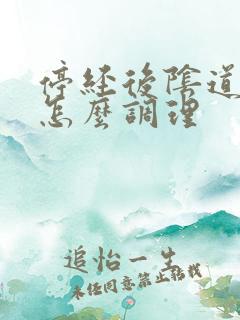 停經後陰道
怎麼調理
追怡一生
未经同意禁止转载